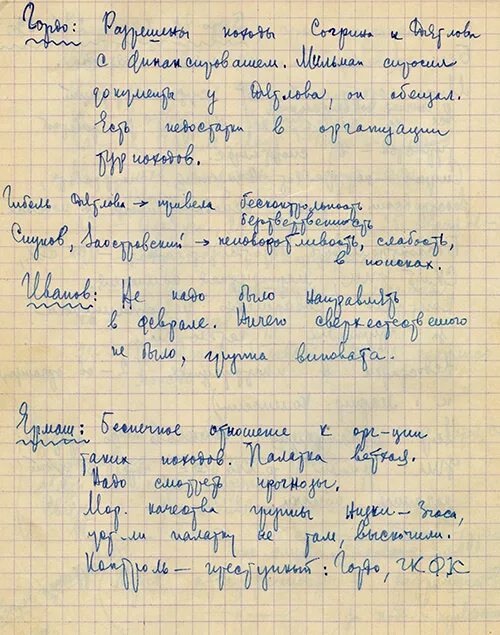 Гордо: Разрешены походы Согрина и Дятлова
с финансированием. Мильман спросил
документы у Дятлова, он обещал.
Есть недостатки в организации
турпоходов.
Гибель Дятлова → привела бесконтрольность
безответственность
Слунов, Заостровский → неповоротливость, слабость,
в поисках.
Иванов: Не надо было направлять
в феврале. Ничего сверхестественного
не было, группа виновата.
Ермаш: Беспечное отношение к орг-ции
таких походов. Палатка ветхая.
Надо смотреть прогнозы.
Мор. качества группы низки – 3 часа,
палатку не там, выскочили.
Контроль – преступный: Гордо, ГК ФК